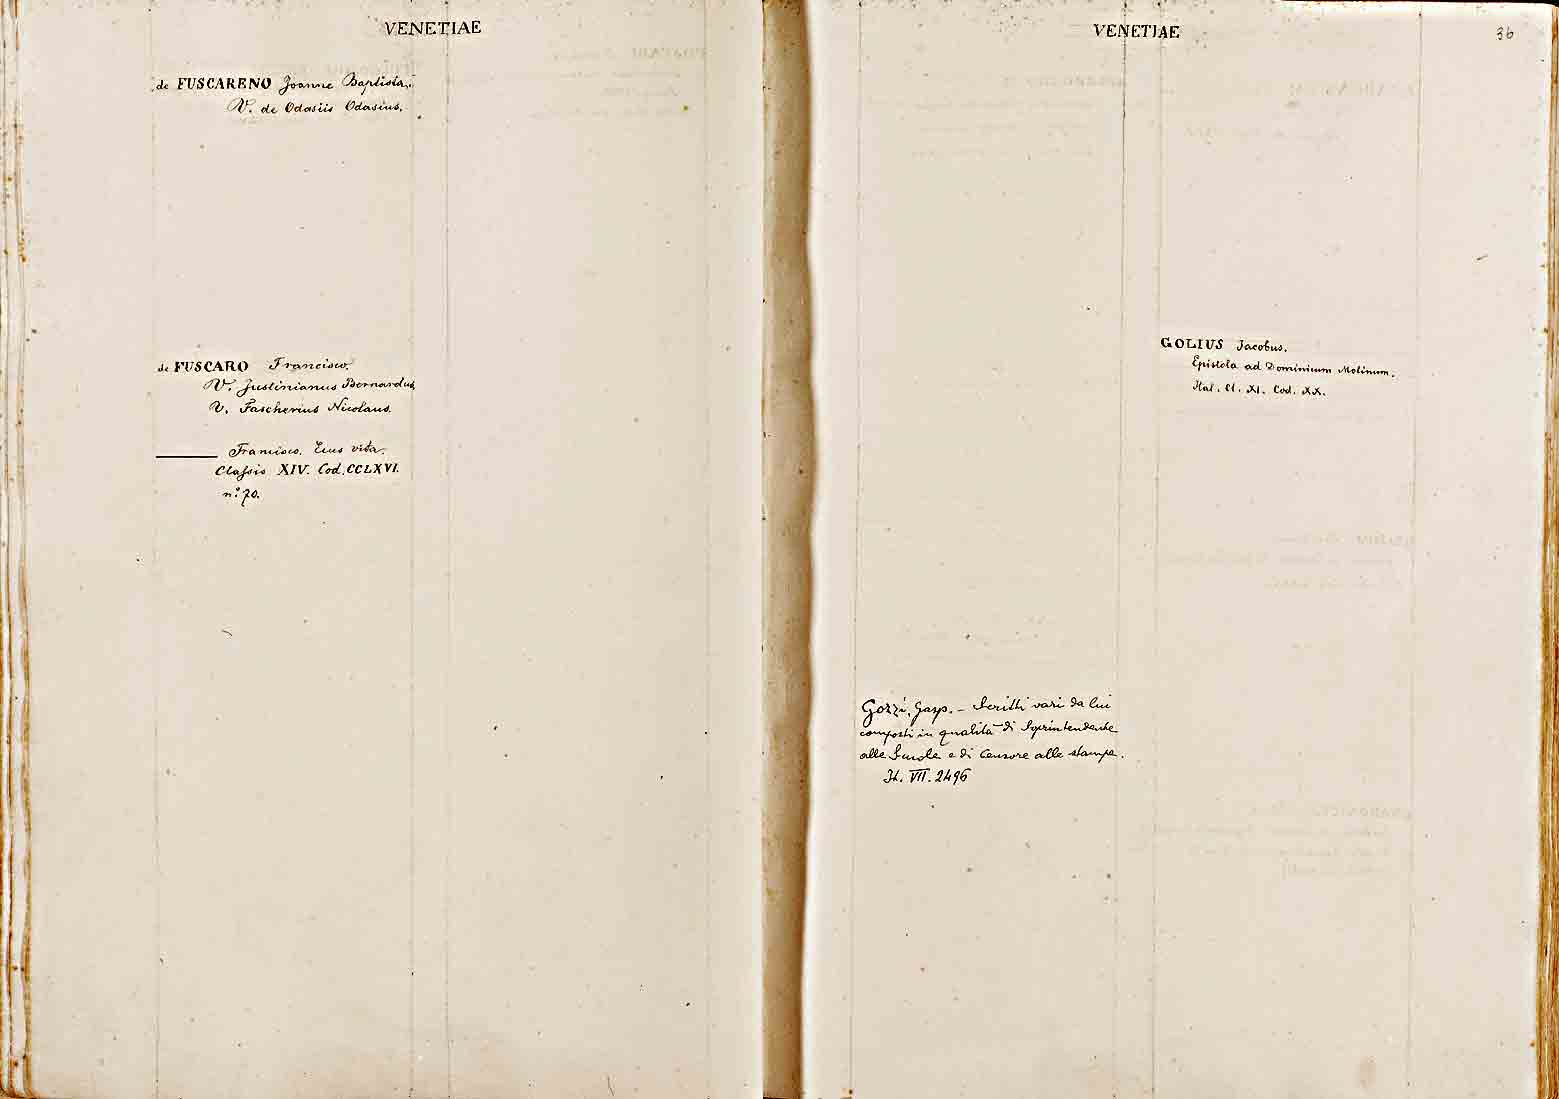 VENETIAE
de FUSCARENO Joanne Baptista.
V. de Odasiis Odasius.
de FUSCARO Francisco.
V. Justinianus Bernardus.
V. Fascherius Nicolaus.
Francisco. Eius vita.
Classis XIV. Cod. CCLXVI.
n.º 70.
VENETIAE
36
GOLIUS Jacobus.
Epistola ad Dominicum Molinum.
Ital. Cl. XI. Cod. XX.
Gozzi, Gasp. – Scritti vari da lui
composti in qualità di Soprintendente
alle Scuole e di Censore alle stampe.
It. VII. 2496